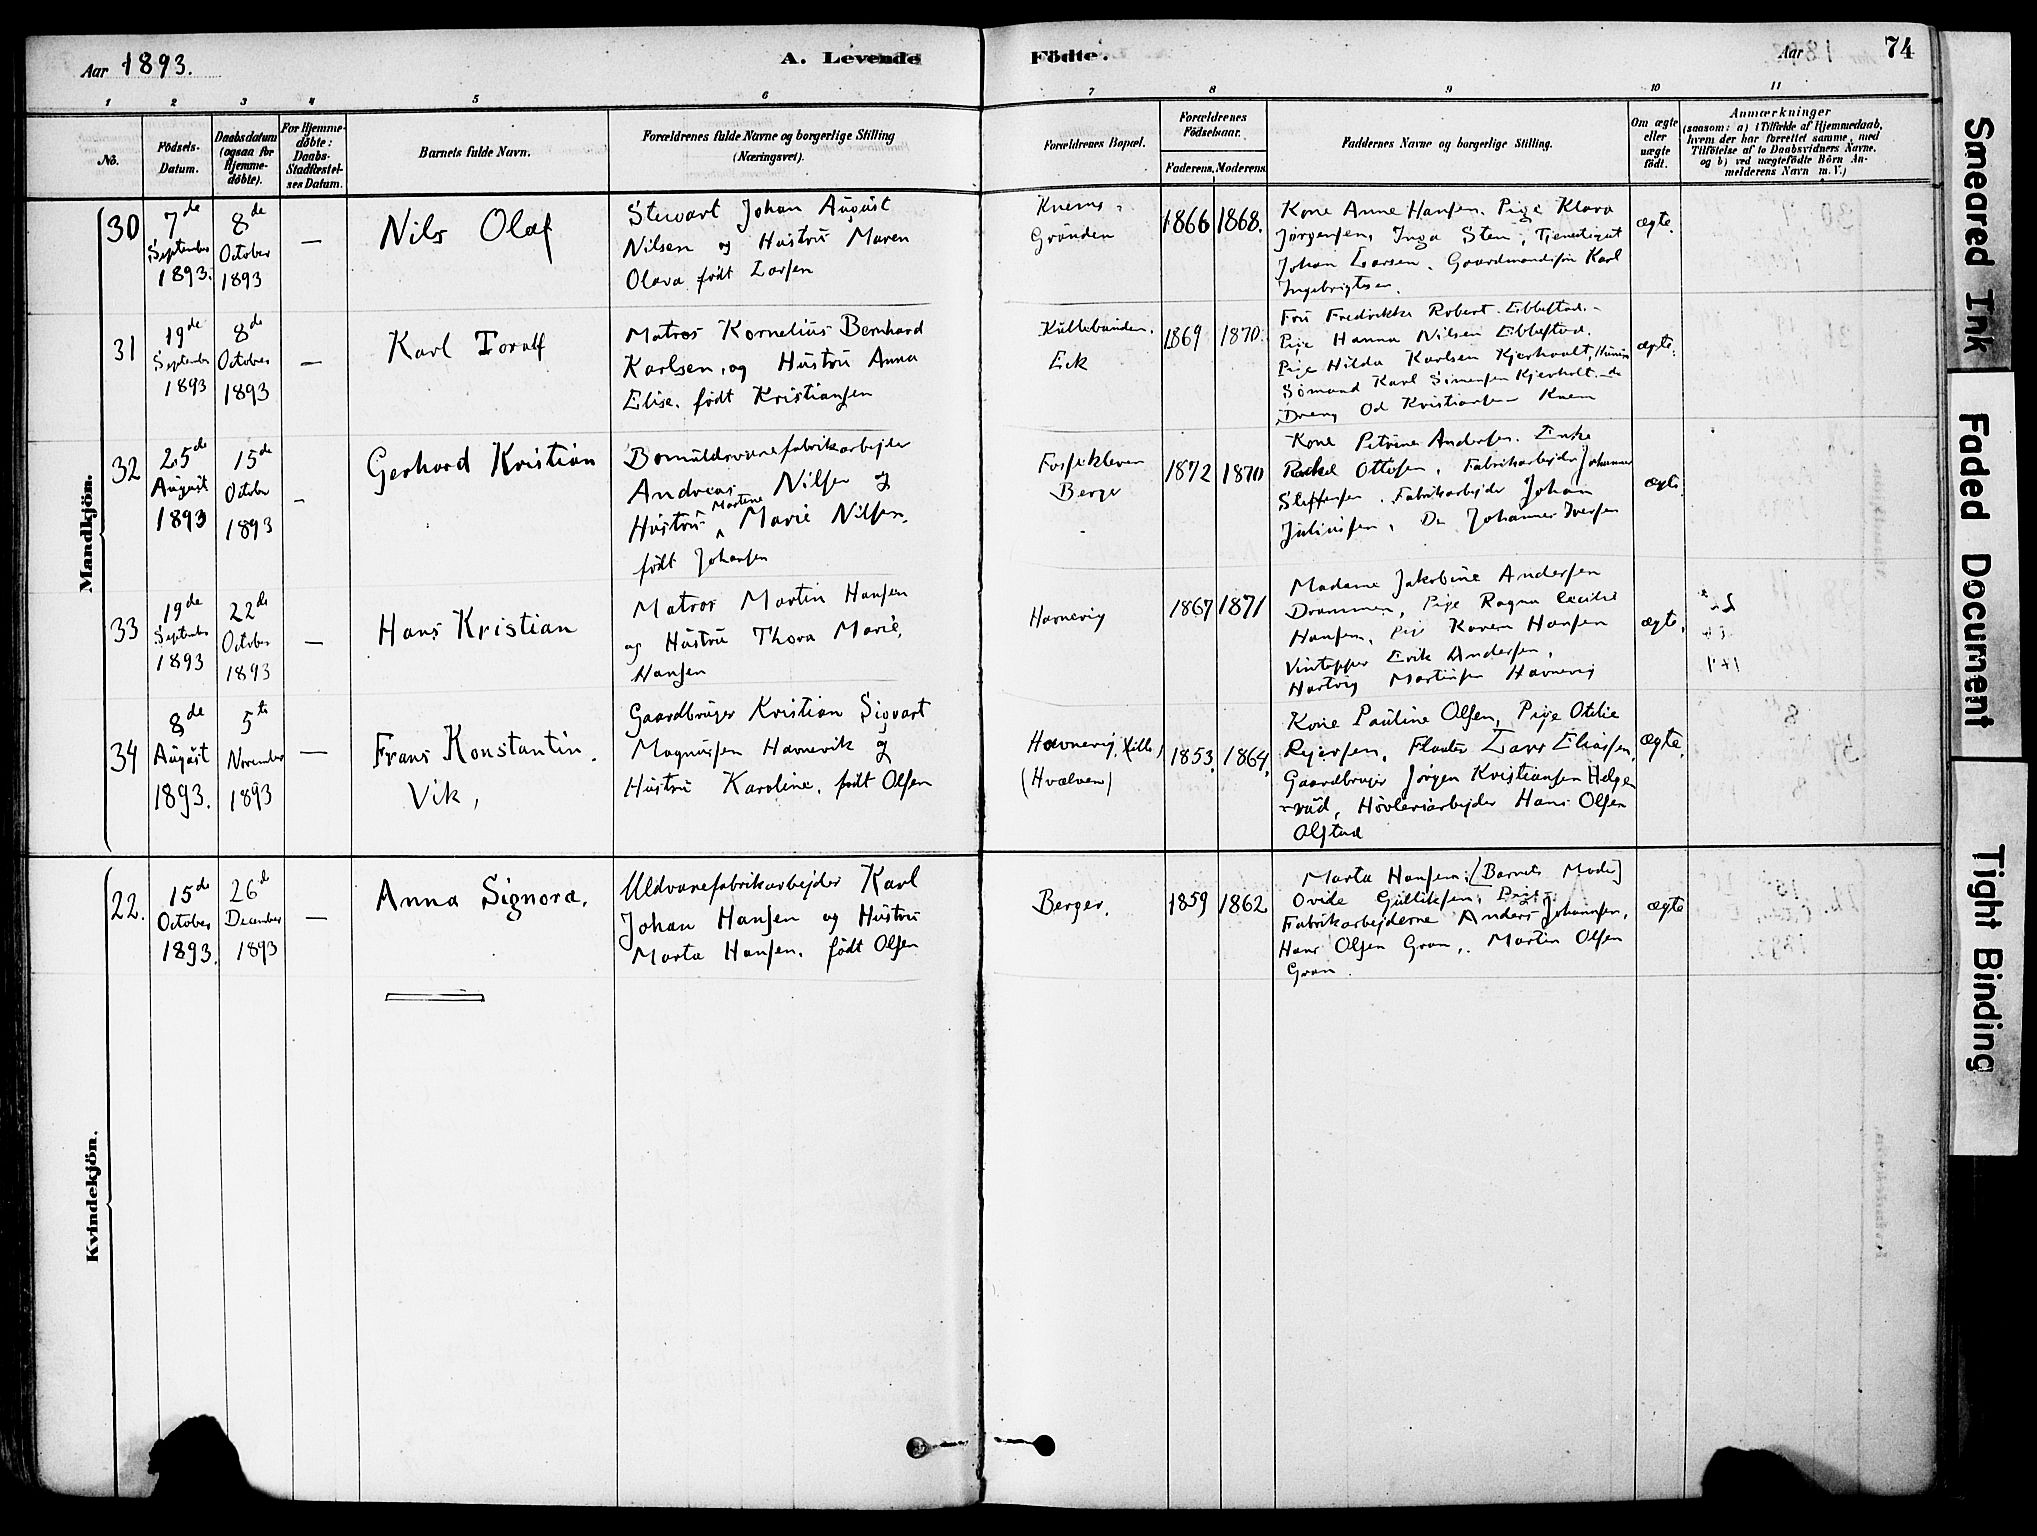 Aar 1893.
A. Levende Födte.
Aar
74
1 2 3 4 5 6 7 8 9 10 11
No.
Födsels-Datum.
Daabsdatum (ogsaa for Hjemme-döbte).
For Hjemme-döbte: Daabs-Stadfæstel-ses Datum.
Barnets fulde Navn.
Forældrenes fulde Navne og borgerlige Stilling (Næringsvei).
Forældrenes Bopæl.
Forældrenes Födselsaar.
Faderens. Moderens.
Faddernes Navne og borgerlige Stilling.
Om ægte eller uægte födt.
Anmærkninger
(saasom: a) i Tilfælde af Hjemmedaab, hvem der har forrettet samme, med Tilföielse af to Daabsvidners Navne. og b) ved uægtefödte Börn An-melderens Navn m. V.)
Mandkjön.
30
7de September 1893.
8de October 1893
—
Nils Olaf
Stewart Johan August
Nilsen og Hustru Maren
Olava født Larsen
Knems
Grønden
1866
1868.
Kone Anne Hansen. Pige Klara
Jørgensen, Inga Sten, Tjenestegut
Johan Larsen. Gaardmandsøn Karl
Ingebrigtsen.
ægte.
31
19de September 1893
8de October 1893
—
Karl Toralf
Matros Kornelius Bernhard
Karlsen, og Hustru Anna
Elise. født Kristiansen
Kullebunden.
Eik
1869
1870.
Fru Fredrikke Robert Ebbestad.
Pige Hanna Nilsen Ebbestad.
Pige Hilda Karlsen Kjerholt,
Sømand Karl Simensen Kjerholt. de
Dreng Od Kristiansen Knem
ægte.
32
25de August 1893
15de October 1893
—
Gerhard Kristian
Bomuldsvarefabrikarbejder
Andreas Nilsen og
Hustru Martene Marie Nilsen.
født Johansen
Fossekleven
Berger
1872
1870
Kone Petrine Andersen. Enke
Rakel Ottosen, Fabrikarbejder Johannes
Steffensen. Fabrikarbejder Johan
Juliussen, Do Johannes Iversen
ægte.
33
19de September 1893
22de October 1893
—
Hans Kristian
Matros Martin Hansen
og Hustru Thora Marie,
Hansen
Havnevig
1867
1871
Madame Jakobine Andersen
Drammen, Pige Ragna Cecilie
Hansen, Pige Karen Hansen
Vintapper Erik Andersen,
Hartvig Martinsen Havnevig
ægte.
34
8de August 1893.
5te November 1893
—
Frans Konstantin.
Vik,
Gaardbruger Kristian Sigvart
Magnussen Havnevik og
Hustru Karoline, født Olsen
Havnevig, lille,
(Hvalven)
1853.
1864.
Kone Pauline Olsen, Pige Otilie
Rejersen, Fløter Lars Eliassen,
Gaardbruger Jørgen Kristiansen Helge-
rud, Høvleriarbejder Hans Olsen
Olstad
ægte.
Kvindekjön.
22.
15de October 1893.
26d December 1893
—
Anna Signora.
Uldvarefabrikarbejder Karl
Johan Hansen og Hustru
Marta Hansen. født Olsen
Berger.
1859
1862
Marta Hansen: [Barnets Moder]
Ovide Gulliksen, Pige
Fabrikarbejderne Anders Johannsen,
Hans Olsen Gran, Martin Olsen
Gran.
ægte
Smeared Ink
Faded Document
Tight Binding